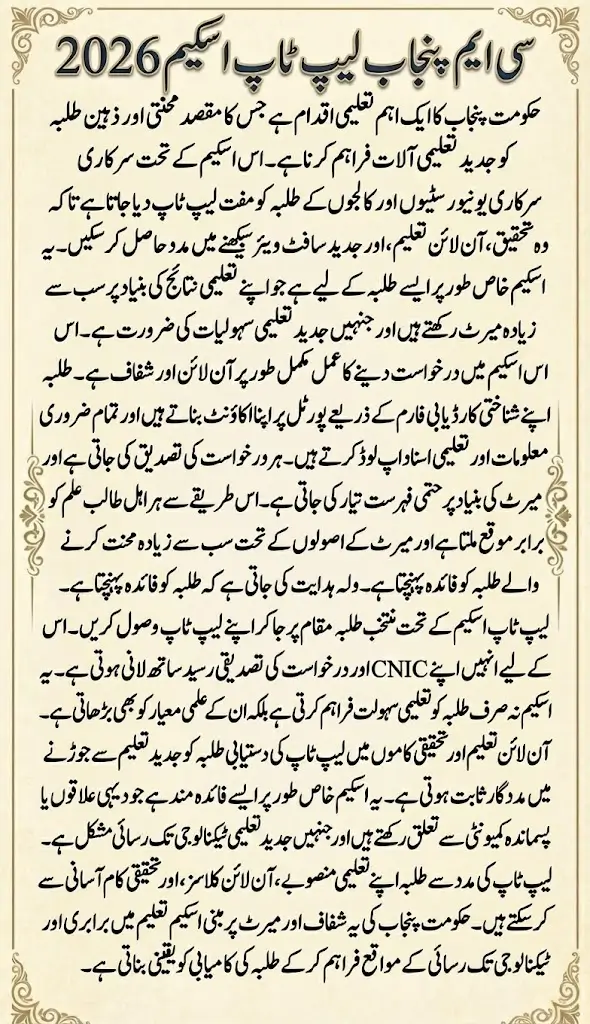 سی ایم پنجاب لیپ ٹاپ اسکیم 2026
حکومت پنجاب کا ایک اہم تعلیمی اقدام ہے جس کا مقصد محنتی اور ذہین طلبہ
کو جدید تعلیمی آلات فراہم کرنا ہے۔ اس اسکیم کے تحت سرکاری
سرکاری یونیورسٹیوں اور کالجوں کے طلبہ کو مفت لیپ ٹاپ دیا جاتا ہے تاکہ
وہ تحقیق، آن لائن تعلیم، اور جدید سافٹ ویئر سیکھنے میں مدد حاصل کر سکیں۔ یہ
اسکیم خاص طور پر ایسے طلبہ کے لیے ہے جو اپنے تعلیمی نتائج کی بنیاد پر سب سے
زیادہ میرٹ رکھتے ہیں اور جنہیں جدید تعلیمی سہولیات کی ضرورت ہے۔ اس
اس اسکیم میں درخواست دینے کا عمل مکمل طور پر آن لائن اور شفاف ہے۔ طلبہ
اپنے شناختی کارڈ یا بی فارم کے ذریعے پورٹل پر اپنا اکاؤنٹ بناتے ہیں اور تمام ضروری
معلومات اور تعلیمی اسناد اپ لوڈ کرتے ہیں۔ ہر درخواست کی تصدیق کی جاتی ہے اور
میرٹ کی بنیاد پر حتمی فہرست تیار کی جاتی ہے۔ اس طریقے سے ہر اہل طالب علم کو
برابر موقع ملتا ہے اور میرٹ کے اصولوں کے تحت سب سے زیادہ محنت کرنے
والے طلبہ کو فائدہ پہنچتا ہے۔ ولہ ہدایت کی جاتی ہے کہ طلبہ کو فائدہ پہنچتا ہے۔
لیپ ٹاپ اسکیم کے تحت منتخب طلبہ مقام پر جا کر اپنے لیپ ٹاپ وصول کریں۔ اس
کے لیے انہیں اپنے CNIC اور درخواست کی تصدیقی رسید ساتھ لانی ہوتی ہے۔ یہ
اسکیم نہ صرف طلبہ کو تعلیمی سہولت فراہم کرتی ہے بلکہ ان کے علمی معیار کو بھی بڑھاتی ہے۔
آن لائن تعلیم اور تحقیقی کاموں میں لیپ ٹاپ کی دستیابی طلبہ کو جدید تعلیم سے جوڑنے
میں مددگار ثابت ہوتی ہے۔ یہ اسکیم خاص طور پر ایسے فائدہ مند ہے جو دیہی علاقوں یا
پسماندہ کمیونٹی سے تعلق رکھتے ہیں اور جنہیں جدید تعلیمی ٹیکنالوجی تک رسائی مشکل ہے۔
لیپ ٹاپ کی مدد سے طلبہ اپنے تعلیمی منصوبے، آن لائن کلاسز، اور تحقیقی کام آسانی سے
کر سکتے ہیں۔ حکومت پنجاب کی یہ شفاف اور میرٹ پر مبنی اسکیم تعلیم میں برابری اور
ٹیکنالوجی تک رسائی کے مواقع فراہم کر کے طلبہ کی کامیابی کو یقینی بناتی ہے۔